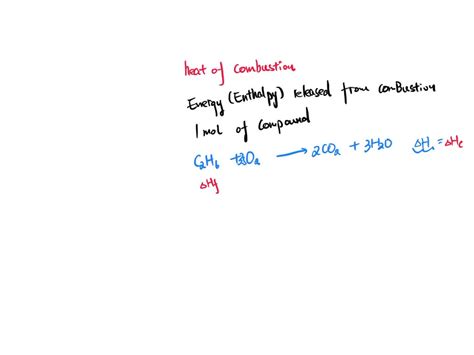 heat of combustion
Energy (Enthalpy) released from comBustion
1 mol of compound
C2H6 + O2 ⟶ 2CO2 + 3H2O ΔH = ΔHc
ΔHf